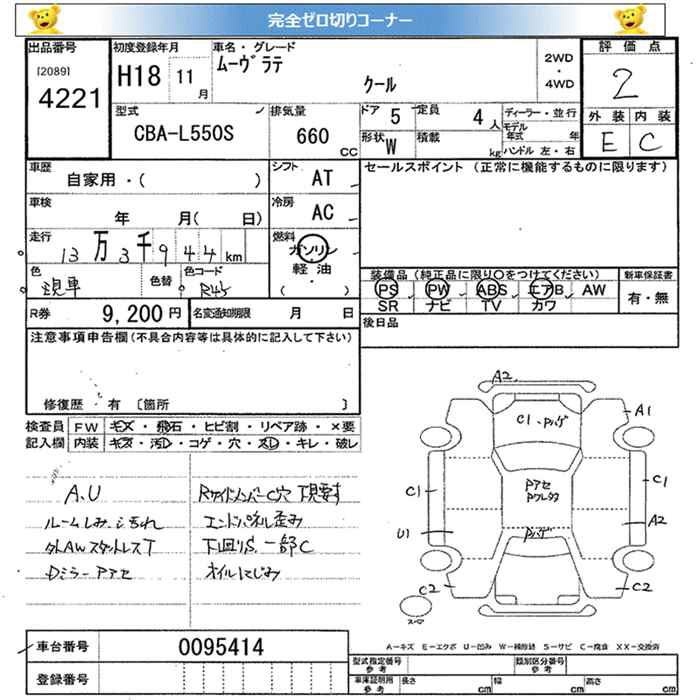 完全ゼロ切りコーナー
出品番号
[2089]
4221
初度登録年月
H18 11月
車名・グレード
ムーヴラテ
クール
2WD
・
4WD
評価点
2
外装 内装
E C
型式
CBA-L550S
排気量
660
CC
ドア 5
定員 4人
形状 W
積載 kg
ディーラー・並行
モデル
年式 年
ハンドル 左・右
車歴
自家用・( )
シフト AT
セールスポイント (正常に機能するものに限ります)
車検
年 月( 日)
冷房 AC
走行
13万3千944km
燃料
ガソリン
軽油
・
( )
色
現車
色替
色コード
R45
装備品(純正品に限り○をつけてください)
PS PW ABS エアB AW
SR ナビ TV カワ
新車保証書
有・無
R券 9,200円
名変通知期限 月 日
後日品
注意事項申告欄(不具合内容等は具体的に記入して下さい)
修復歴 有 〔箇所 〕
検査員
記入欄
FW キズ・飛石・ヒビ割・リペア跡・×要
内装 キズ・汚レ・コゲ・穴・スレ・キレ・破レ
A.U
ルームしみ.汚れ
外AWスタットレスT
DミラーPアセ
RサイドメンバーC穴 下見要す
エンドパネル歪み
下回りS.一部C
オイルにじみ
A2
C1.Pハゲ
A1
C1
Pアセ
PワレタS
C1
U1
Pハゲ
A2
C2
C2
スペア
A−キズ E−エクボ U−凹み W−補修跡 S−サビ C−腐食 XX−交換済
車台番号 0095414
登録番号
型式指定番号
参考
類別区分番号
参考
車庫証明用
参考
長さ cm
幅 cm
高さ cm